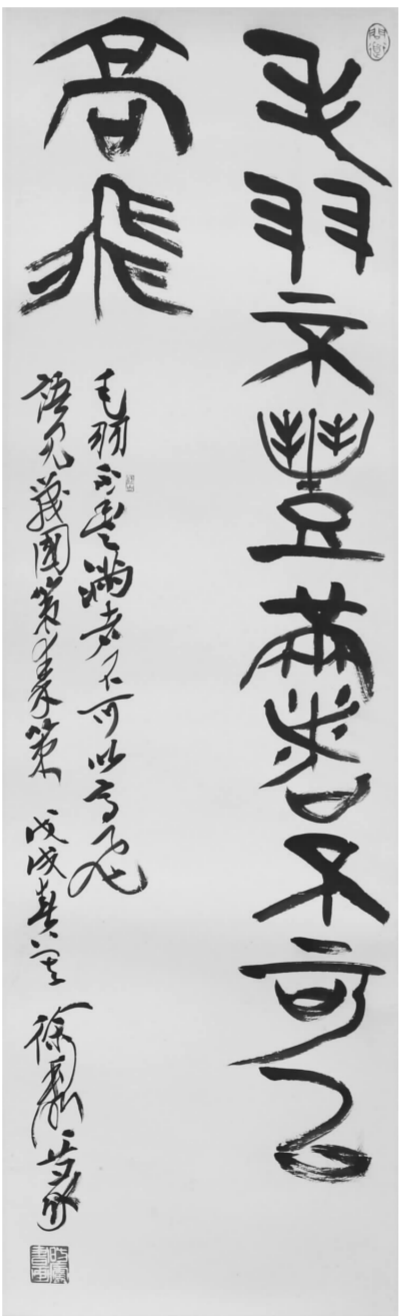 毛羽不豐滿者不可以
高飛
毛羽不豐滿者不可以高飛
語見戰國策秦策 戊戌 徐